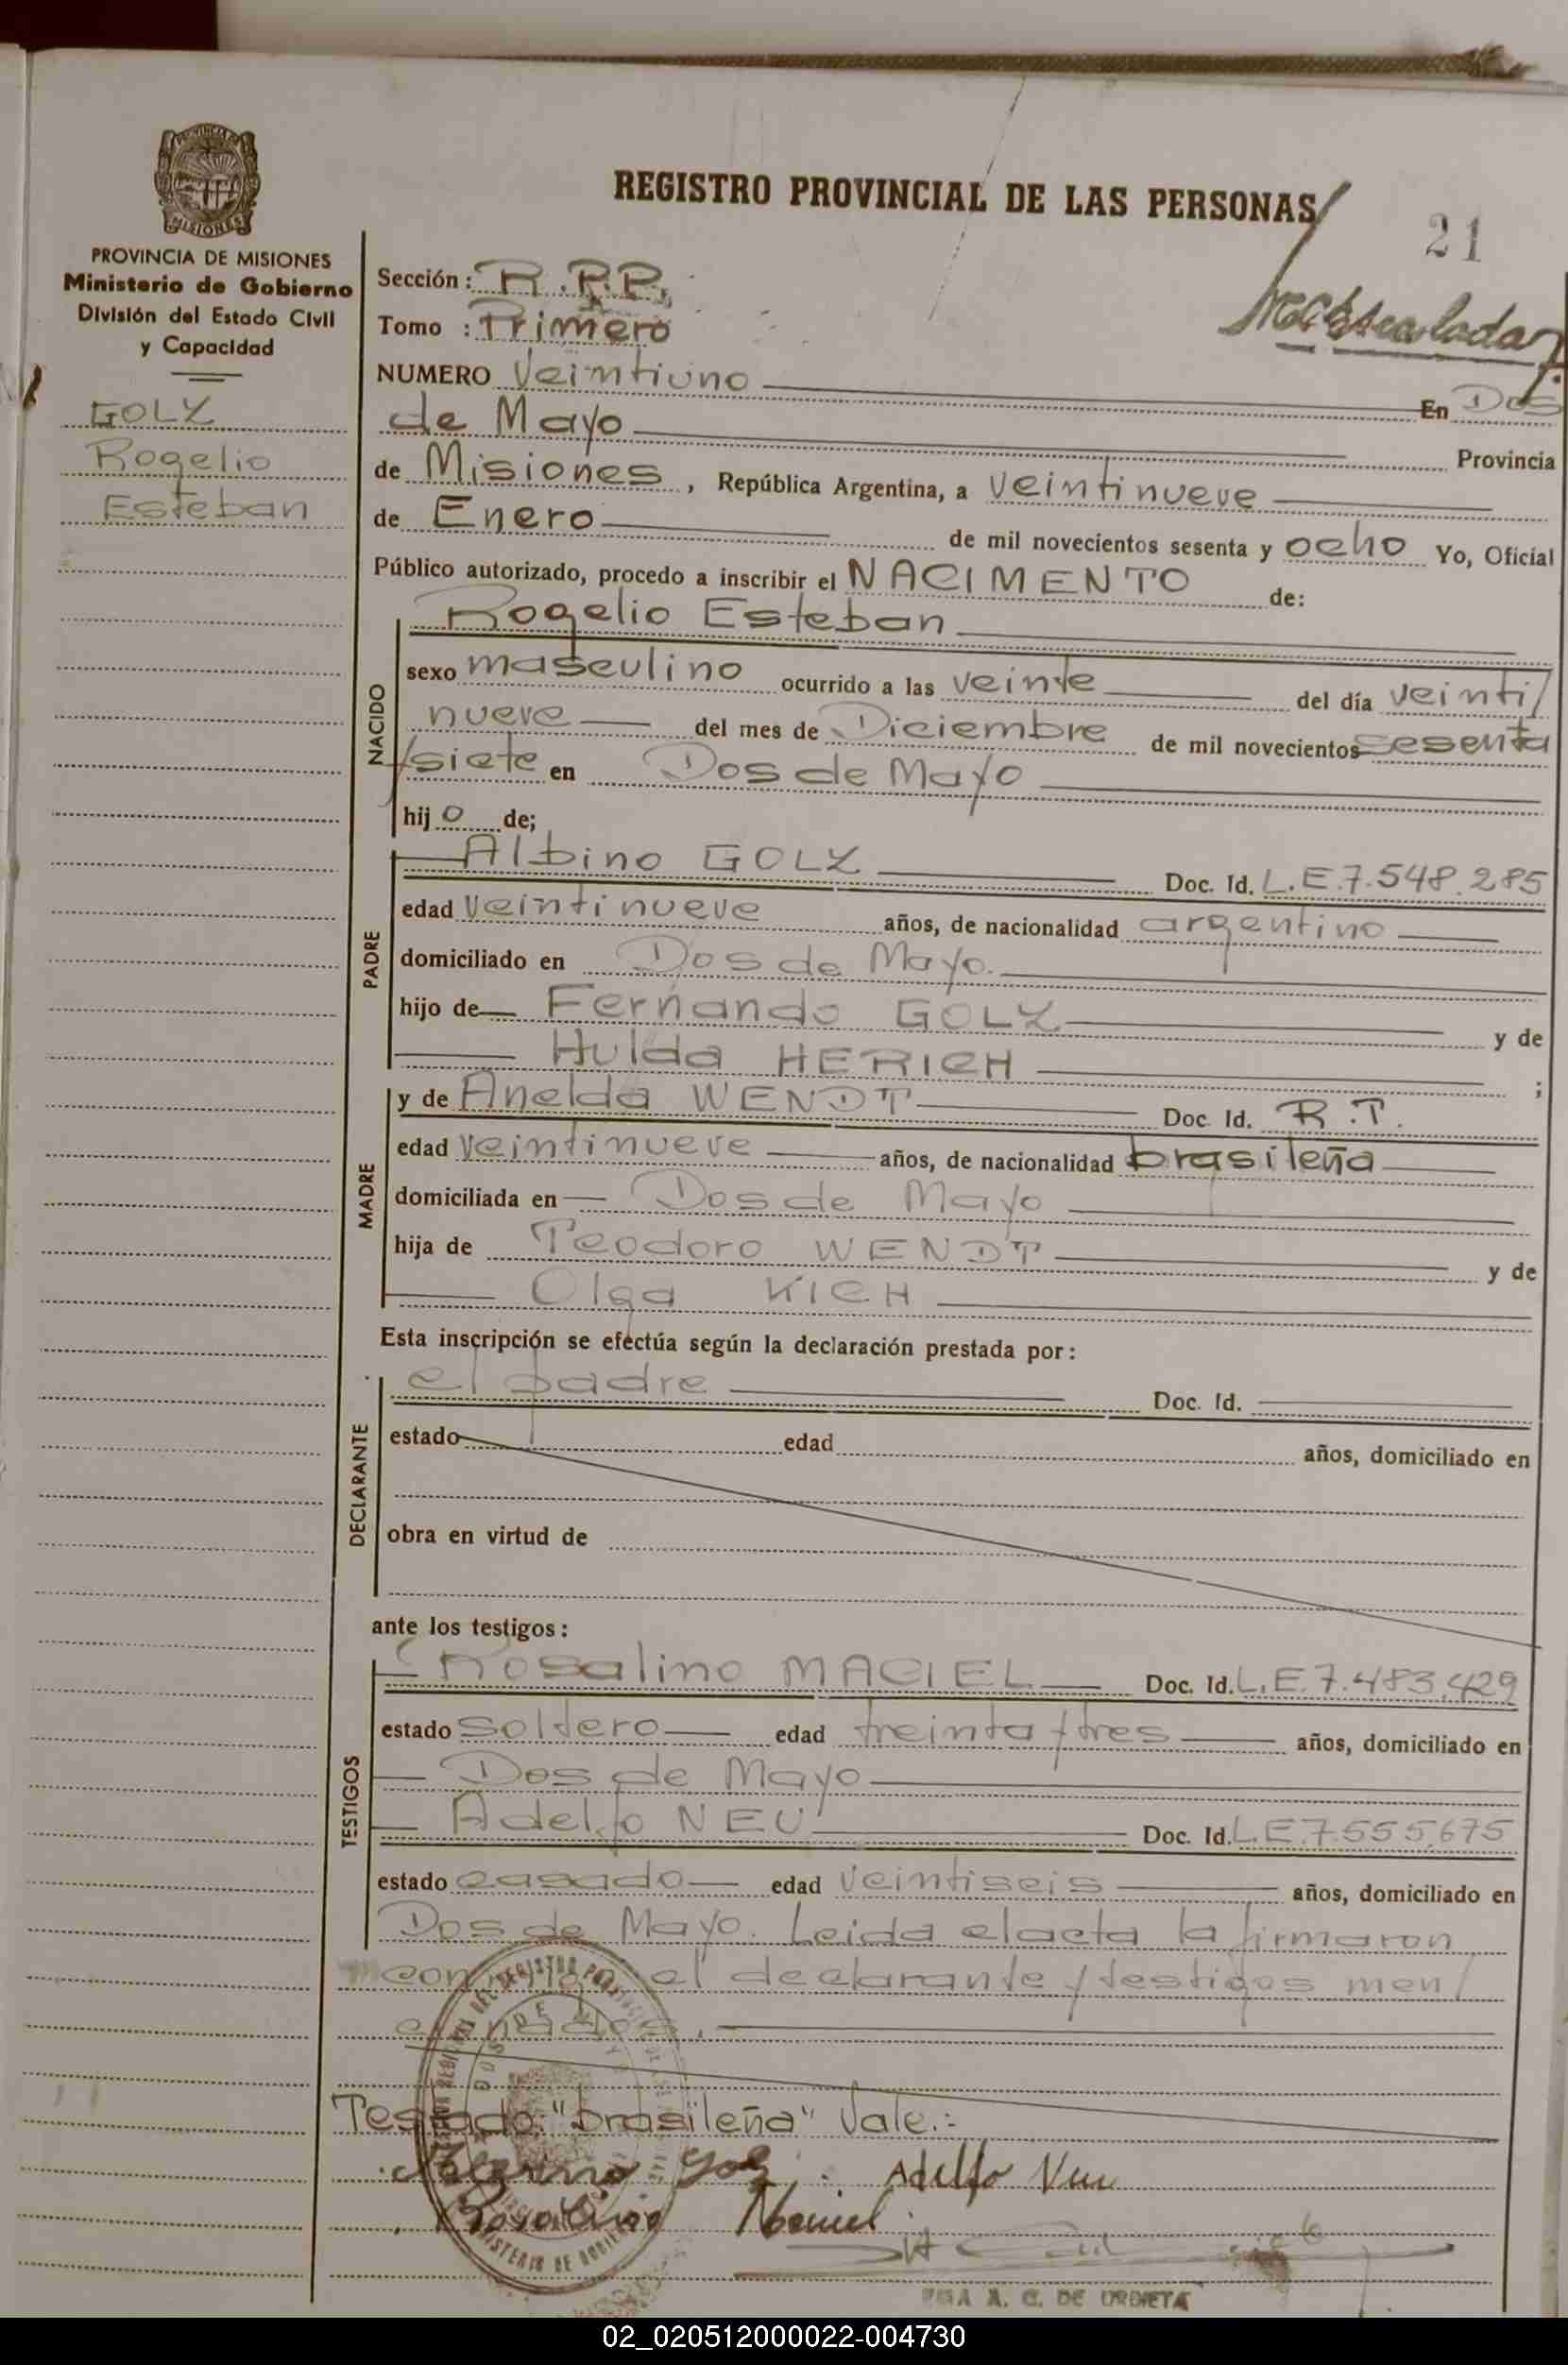 REGISTRO PROVINCIAL DE LAS PERSONAS
21
PROVINCIA DE MISIONES
Ministerio de Gobierno
División del Estado Civil
y Capacidad
GOLZ
Rogelio
Esteban
Sección: R.P.P.
Tomo : Primero
NUMERO Veintiuno En Dos
de Mayo Provincia
de Misiones, República Argentina, a veintinueve
de Enero de mil novecientos sesenta y ocho Yo, Oficial
Público autorizado, procedo a inscribir el NACIMENTO de:
NACIDO
Rogelio Esteban
sexo masculino ocurrido a las veinte del día veinti/
nueve del mes de Diciembre de mil novecientos sesenta
/siete en Dos de Mayo
hijo de;
PADRE
Albino GOLZ Doc. Id. L.E.7.548.285
edad veintinueve años, de nacionalidad argentino
domiciliado en Dos de Mayo.
hijo de Fernando GOLZ y de
Hulda HERICH ;
MADRE
y de Anelda WENDT Doc. Id. R.T.
edad veintinueve años, de nacionalidad brasileña
domiciliada en Dos de Mayo
hija de Teodoro WENDT y de
Olga KICH
Esta inscripción se efectúa según la declaración prestada por:
DECLARANTE
el padre Doc. Id.
estado edad años, domiciliado en
obra en virtud de
ante los testigos:
TESTIGOS
Rosalino MACIEL Doc. Id. L.E.7.483.429
estado soltero edad treinta y tres años, domiciliado en
Dos de Mayo
Adelfo NEU Doc. Id. L.E.7.555.675
estado casado edad veintiseis años, domiciliado en
Dos de Mayo. Leida el acta la firmaron
conmigo el declarante y testigos men/
cionados.
Testado: "brasileña" Vale.-
Adelfo Neu
Rosalino Maciel
A. C. DE URDIETA
02_020512000022-004730